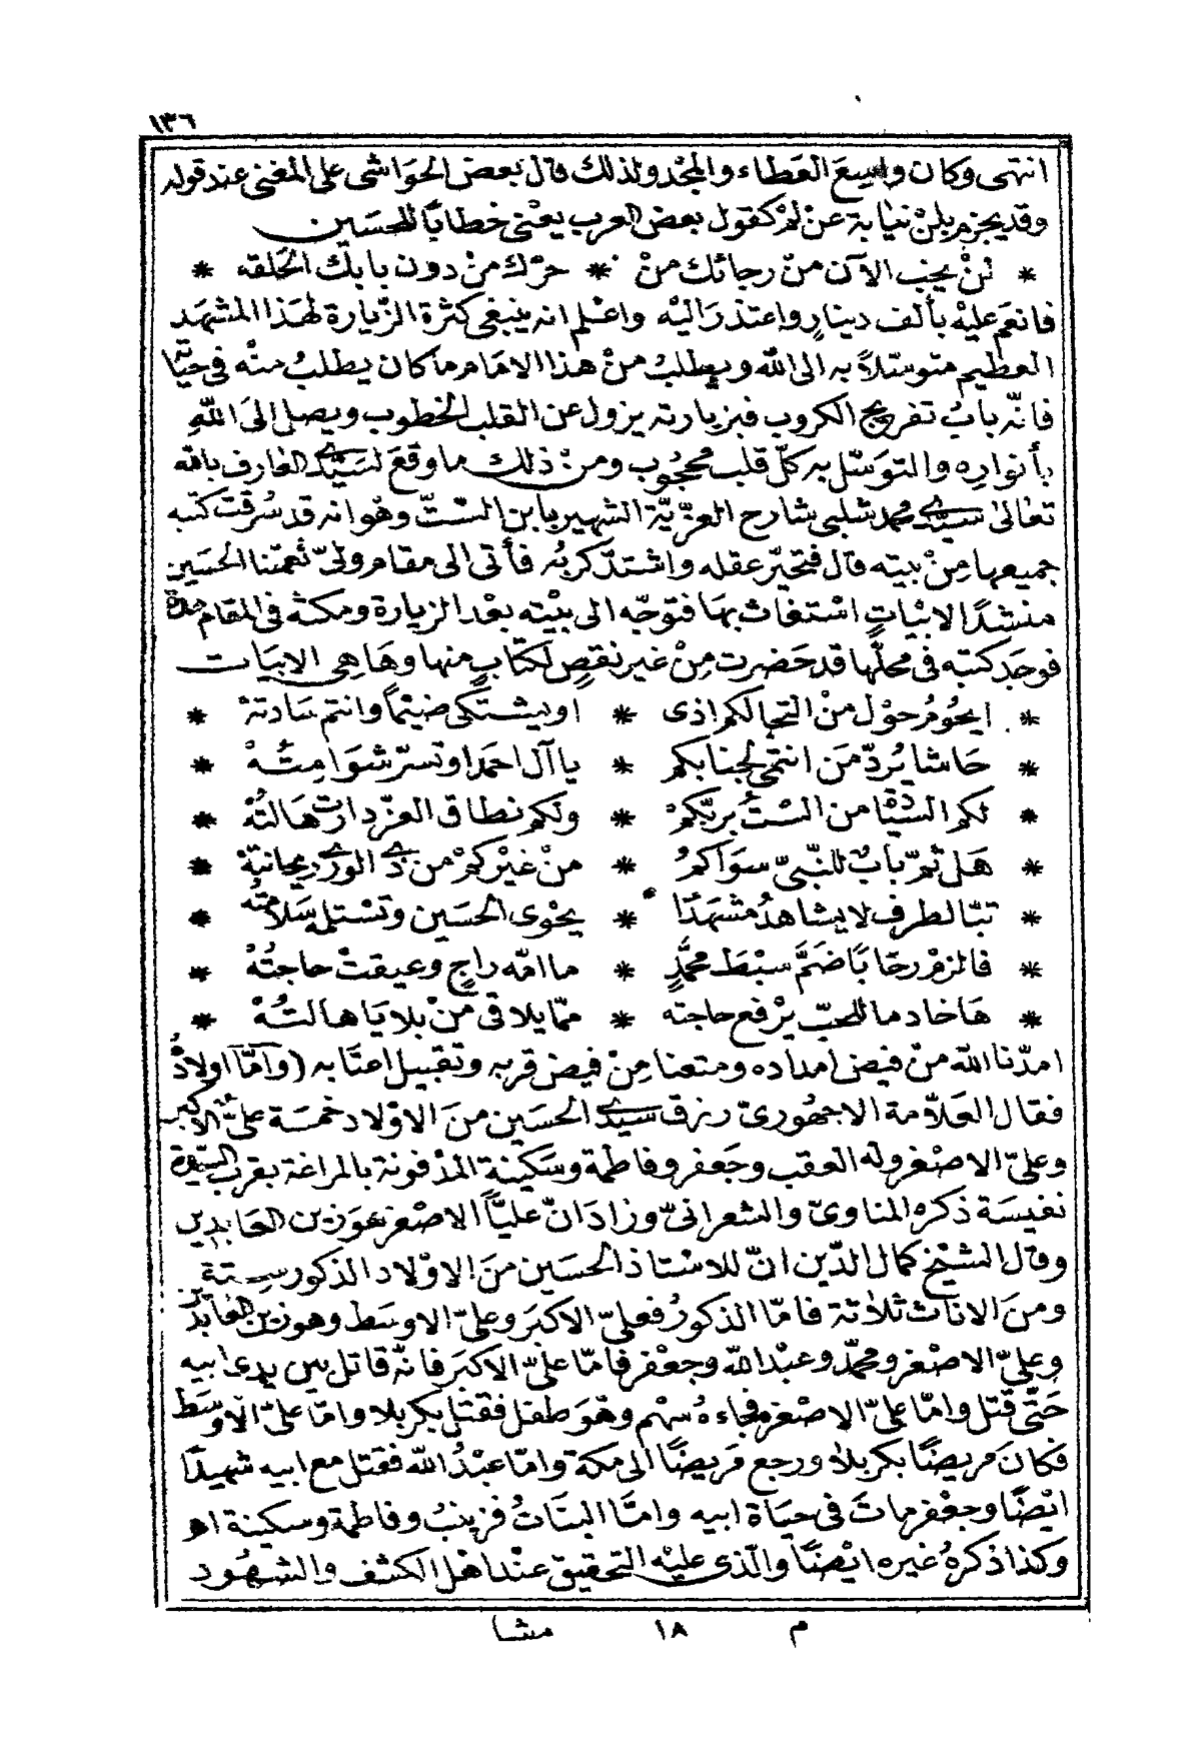 ١٣٦
انتهى وكان واسِعَ العَطاء والمجْد ولذلك قال بعض الحَوَاشى على المغنى عند قوله
وقد يجزم بلنْ نيابة عنْ لمْ كقول بعض العرب يعْنى خطابًا للحسَين
* لنْ يخب الآن منْ رجائك منْ * حرّك منْ دون بابك الحَلقه *
فانعَم عليْه بألف دينارٍ واعتذرَ اليْه واعْلم انه ينبغى كثرة الزّيارة لهذا المشهَد
العظيم متوسّلاً به الى الله ويطلبُ منْ هذا الامام ما كان يطلبُ منْه فى حيَاته
فانّه بابُ تفريج الكروب فبزيارته يزول عن القلب الخطوب ويصل الىَ اللهِ
بأنواره والتوسّل به كلّ قلب محجُوب ومنْ ذلك ما وقعَ لسَيّدى العَارف بالله
تعَالى سيّدى محمد شلبى شارح العزّيّة الشهير بابن الستّ وهُوانه قد سُرقتْ كتبه
جميعها مِنْ بيته قال فتحيّر عقله واشتدّ كربُه فأتى الى مقام ولىّ نعمتنا الحسَين
منشدًا لابْياتٍ اسْتغاث بهَا فتوجّه الى بيْته بعْد الزيارة ومكثه فى المقام مدة
فوجَد كتبه فى محلّها قد حَضرت مِنْ غير نقصٍ لكتابٍ منها وهَا هى الابيَات
* ايحُومُ حوْل منْ التجا لكم اذى * او يشتكى ضيْمًا وانتم سَادتهْ *
* حَاشا يُردّ مَن انتمى لجنابكم * يا آل احمَد او تسرّ شوَامِتُهْ *
* لكم السّيَادة من الستُ بربّكمْ * ولكم نطاق العزّ دارت هَالتُهْ *
* هَل ثمّ بابٌ للنّبىّ سوَاكمُ * منْ غيْركمْ من ذى الورى ريحانتهْ *
* تبّا لطرفٍ لا يشاهدُ مشهَدًا * يحْوى الحسَين وتسْتلم سَلامتُه *
* فالزمْ رحَابًا ضَمَّ سبْطَ محمَّدٍ * ما امّه راجٍ وعيقتْ حاجتُهْ *
* هَا خادما للحبّ يرْفع حاجته * ممّا يلاقى منْ بلايَا هالتُهْ *
امدّنا الله منْ فيض امداده ومتعنا مِنْ فيض قربه وتقبيل اعتَابه (وَأمّا اولادُهْ
فقال العَلاّمة الاجهُورىّ رزق سيّدى الحسَين منَ الاوْلاد خمسَة علىّ الاكبر
وعلىّ الاصْغر وله العقب وجَعفر وفاطمة وسَكينة المدْفونة بالمراغة بقرب السيّدة
نفيسَة ذكره المناوىّ والشعرانىّ وزادَ انّ عليّاً الاصْغر هوَ زين العَابدين
وقال الشيْخ كمال الدّين انّ للاسْتاذ الحسَين منَ الاوْلاد الذكور ستة
ومنَ الاناث ثلاثة فامّا الذكورُ فعلىّ الاكبَر وعلىّ الاوسَط وهو زين العَابدين
وعلىّ الاصْغر ومحمّد وعبْد الله وجعْفر فامّا علىّ الاكبَر فانّه قاتل بين يدى ابيه
حَتّى قتل وامّا علىّ الاصْغر فجاءهُ سهْم وهوَ طفل فقتل بكربلا وامّا علىّ الاوسَط
فكانَ مريضًا بكربلا ورجع مَريضًا الى مكة وامّا عبْدُ الله فقتل مع ابيه شهيدًا
ايْضًا وجعْفر ماتَ فى حيَاة ابيه وامّا البنَاتُ فزينبُ وفاطمة وسكينة اهـ
وكذا ذكرهُ غيره ايْضاً والّذى عليْه التحقيق عنْد اهْل الكشف والشهُود
م ١٨ مشا